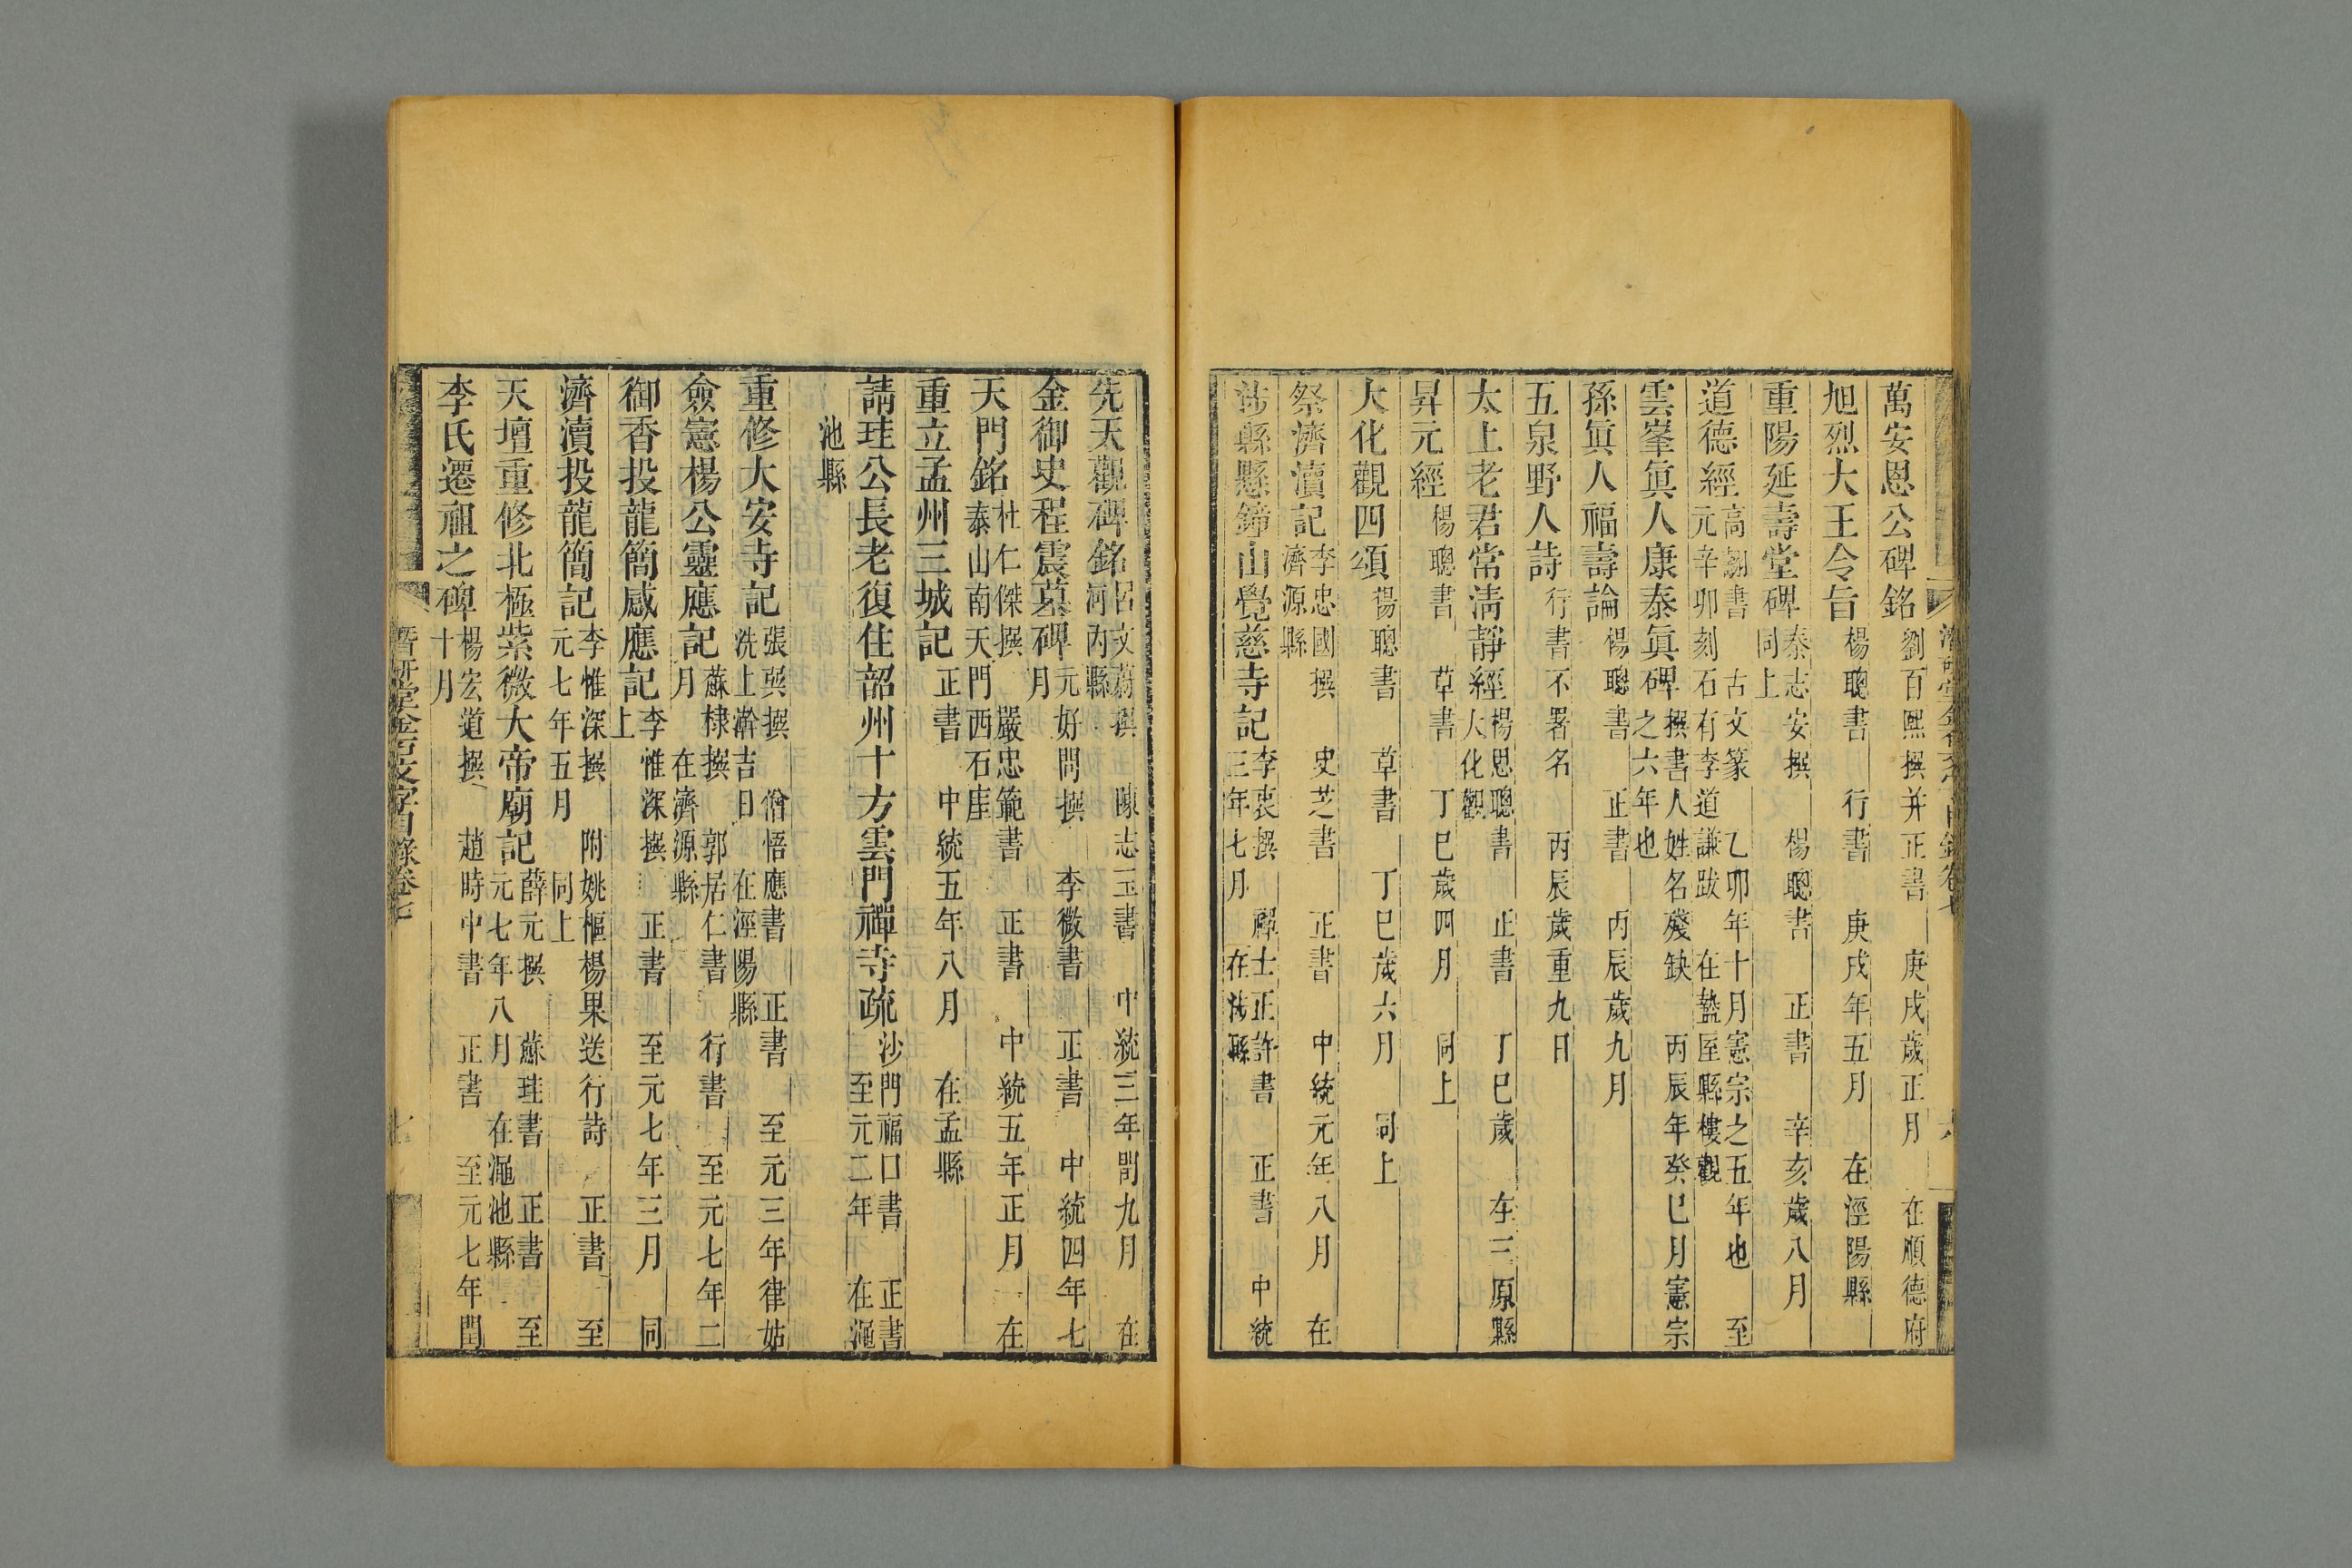 萬安恩公碑銘 劉百熙撰并正書 庚戌歲正月 在順德府
旭烈大王令旨 楊聰書 行書 庚戌年五月 在涇陽縣
重陽延壽堂碑 秦志安撰 楊聰書 正書 辛亥歲八月 同上
道德經 高翿書 古文篆 乙卯年十月憲宗之五年也 至元辛卯刻石有李道謙跋 在盩厔縣樓觀
雲峯眞人康泰眞碑 撰書人姓名殘缺 丙辰年癸巳月憲宗之六年也
孫眞人福壽論 楊聰書 正書 丙辰歲九月
五泉野人詩 行書不署名 丙辰歲重九日
太上老君常淸靜經 楊思聰書 正書 丁巳歲 在三原縣大化觀
昇元經 楊聰書 草書 丁巳歲四月 同上
大化觀四頌 楊聰書 草書 丁巳歲六月 同上
祭濟瀆記 李忠國撰 史芝書 正書 中統元年八月 在濟源縣
涉縣懸鐘山覺慈寺記 李衷撰 禪士正許書 正書 中統三年七月 在涉縣
先天觀碑銘 呂文蔚撰 陳志玉書 中統三年閏九月 在河內縣
金御史程震墓碑 元好問撰 李微書 正書 中統四年七月
天門銘 杜仁傑撰 嚴忠範書 正書 中統五年正月 在泰山南天門西石崖
重立孟州三城記 正書 中統五年八月 在孟縣
請珪公長老復住韶州十方雲門禪寺疏 沙門福口書 正書 至元二年 在澠
池縣
重修大安寺記 張巽撰 僧悟應書 正書 至元三年律姑洗上澣吉日 在涇陽縣
僉憲楊公靈應記 蘇棣撰 郭居仁書 行書 至元七年二月 在濟源縣
御香投龍簡感應記 李惟深撰 正書 至元七年三月 同上
濟瀆投龍簡記 李惟深撰 附姚樞楊果送行詩 正書 至元七年五月 同上
天壇重修北極紫微大帝廟記 薛元撰 蘇珪書 正書 至元七年八月 在澠池縣
李氏遷祖之碑 楊宏道撰 趙時中書 正書 至元七年閏十月
潛研堂金石文字目錄卷七 七